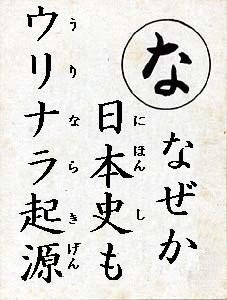 な
なぜか
日本史も
にほんし
ウリナラ起源
うりならきげん